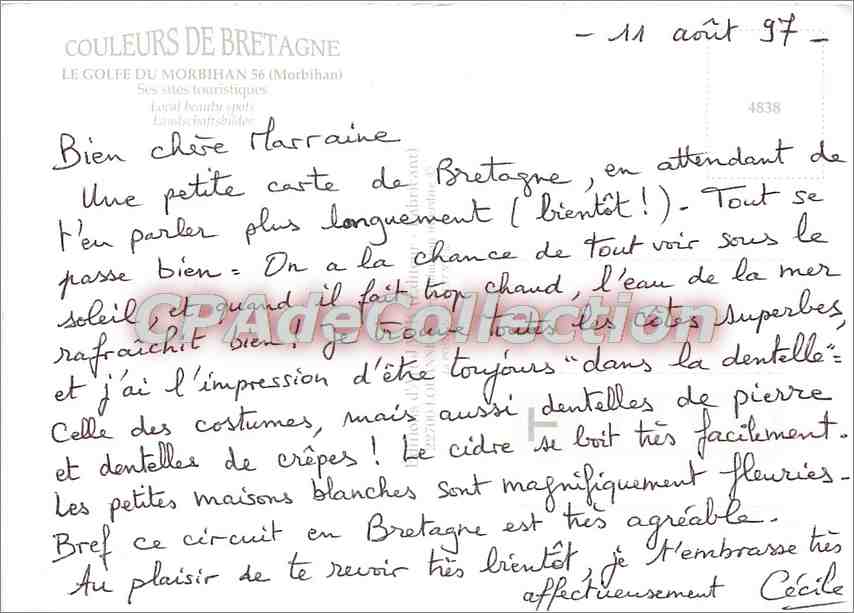 - 11 août 97 -
COULEURS DE BRETAGNE
LE GOLFE DU MORBIHAN 56 (Morbihan)
Ses sites touristiques
Local beauty spots
Landschaftsbilder
4838
Bien chère Marraine
Une petite carte de Bretagne, en attendant de
t'en parler plus longuement (bientôt !) - Tout se
passe bien = On a la chance de tout voir sous le
soleil, et quand il fait trop chaud, l'eau de la mer
rafraîchit bien ! Je trouve toutes les côtes superbes,
et j'ai l'impression d'être toujours "dans la dentelle" =
Celle des costumes, mais aussi dentelles de pierre
et dentelles de crêpes ! Le cidre se boit très facilement.
Les petites maisons blanches sont magnifiquement fleuries -
Bref ce circuit en Bretagne est très agréable.
Au plaisir de te revoir très bientôt, je t'embrasse très
affectueusement Cécile
CPAdeCollection